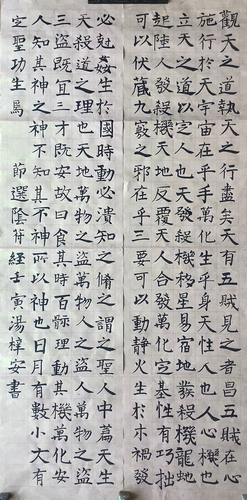 觀天之道執天之行盡矣天有五賊見之者昌五賊在心
施行於天宇宙在乎手萬化生乎身天性人也人心機也
立天之道以定人也天發殺機移星易宿地發殺機龍蛇
起陸人發殺機天地反覆天人合發萬化定基性有巧拙
可以伏藏九竅之邪在乎三要可以動靜火生於木禍發
必尅姦生於國時動必潰知之脩之謂之聖人中篇天生
天殺道之理也天地萬物之盜萬物人之盜人萬物之盜
三盜既宜三才既安故曰食其時百骸理動其機萬化安
人知其神之神不知其不神所以神也日月有數小大有
定聖功生焉 節選陰符經壬寅湯安書